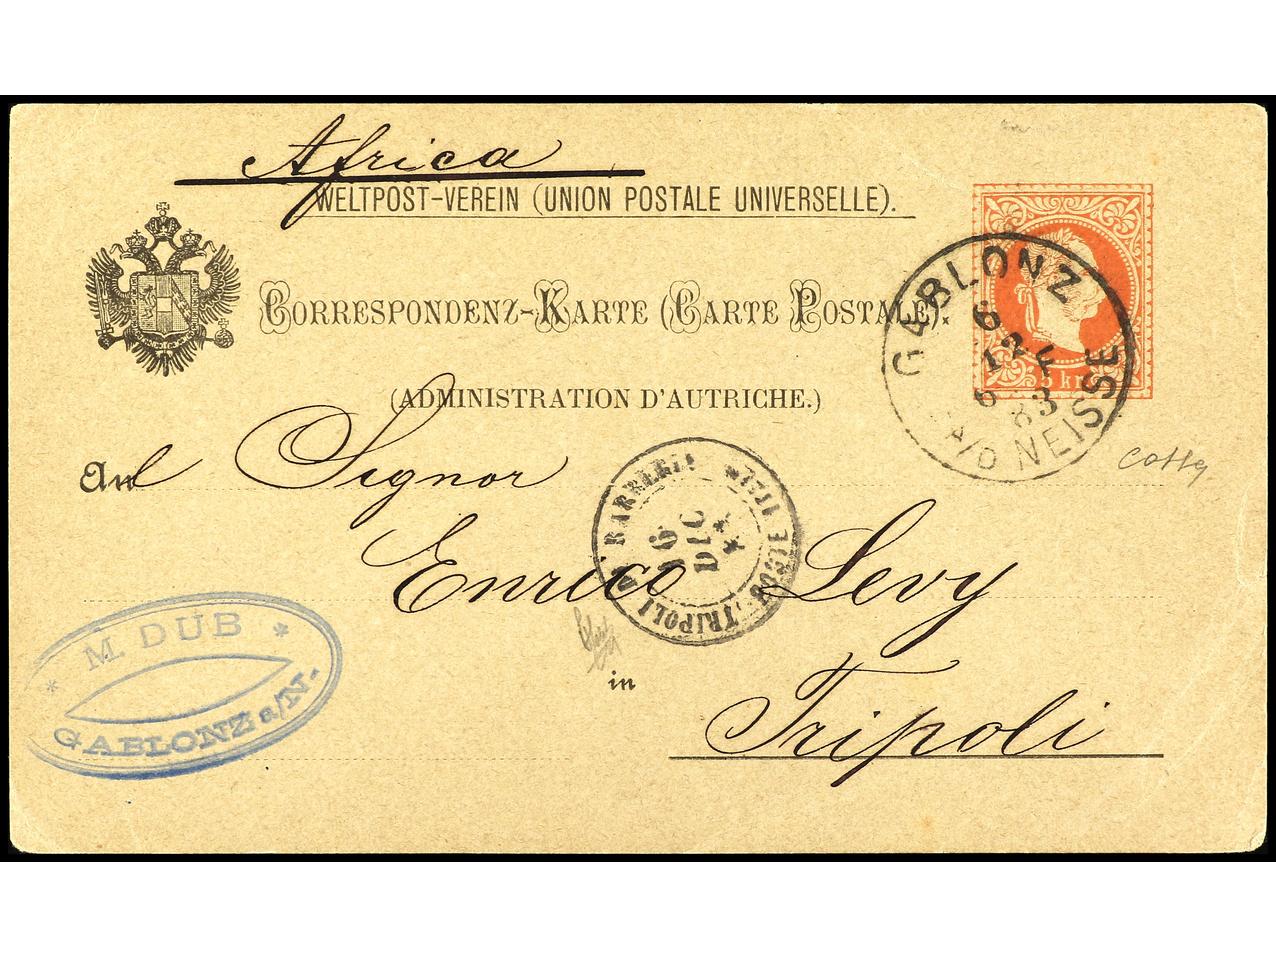 Africa
WELTPOST-VEREIN (UNION POSTALE UNIVERSELLE).
CORRESPONDENZ-KARTE (CARTE POSTALE).
(ADMINISTRATION D'AUTRICHE.)
5 kr
GABLONZ
6
12 F
83
A/D NEISSE
An Signor
Enrico Levy
in
Tripoli
TRIPOLI DI BARBERIA
DIC
* M. DUB *
GABLONZ a/N.